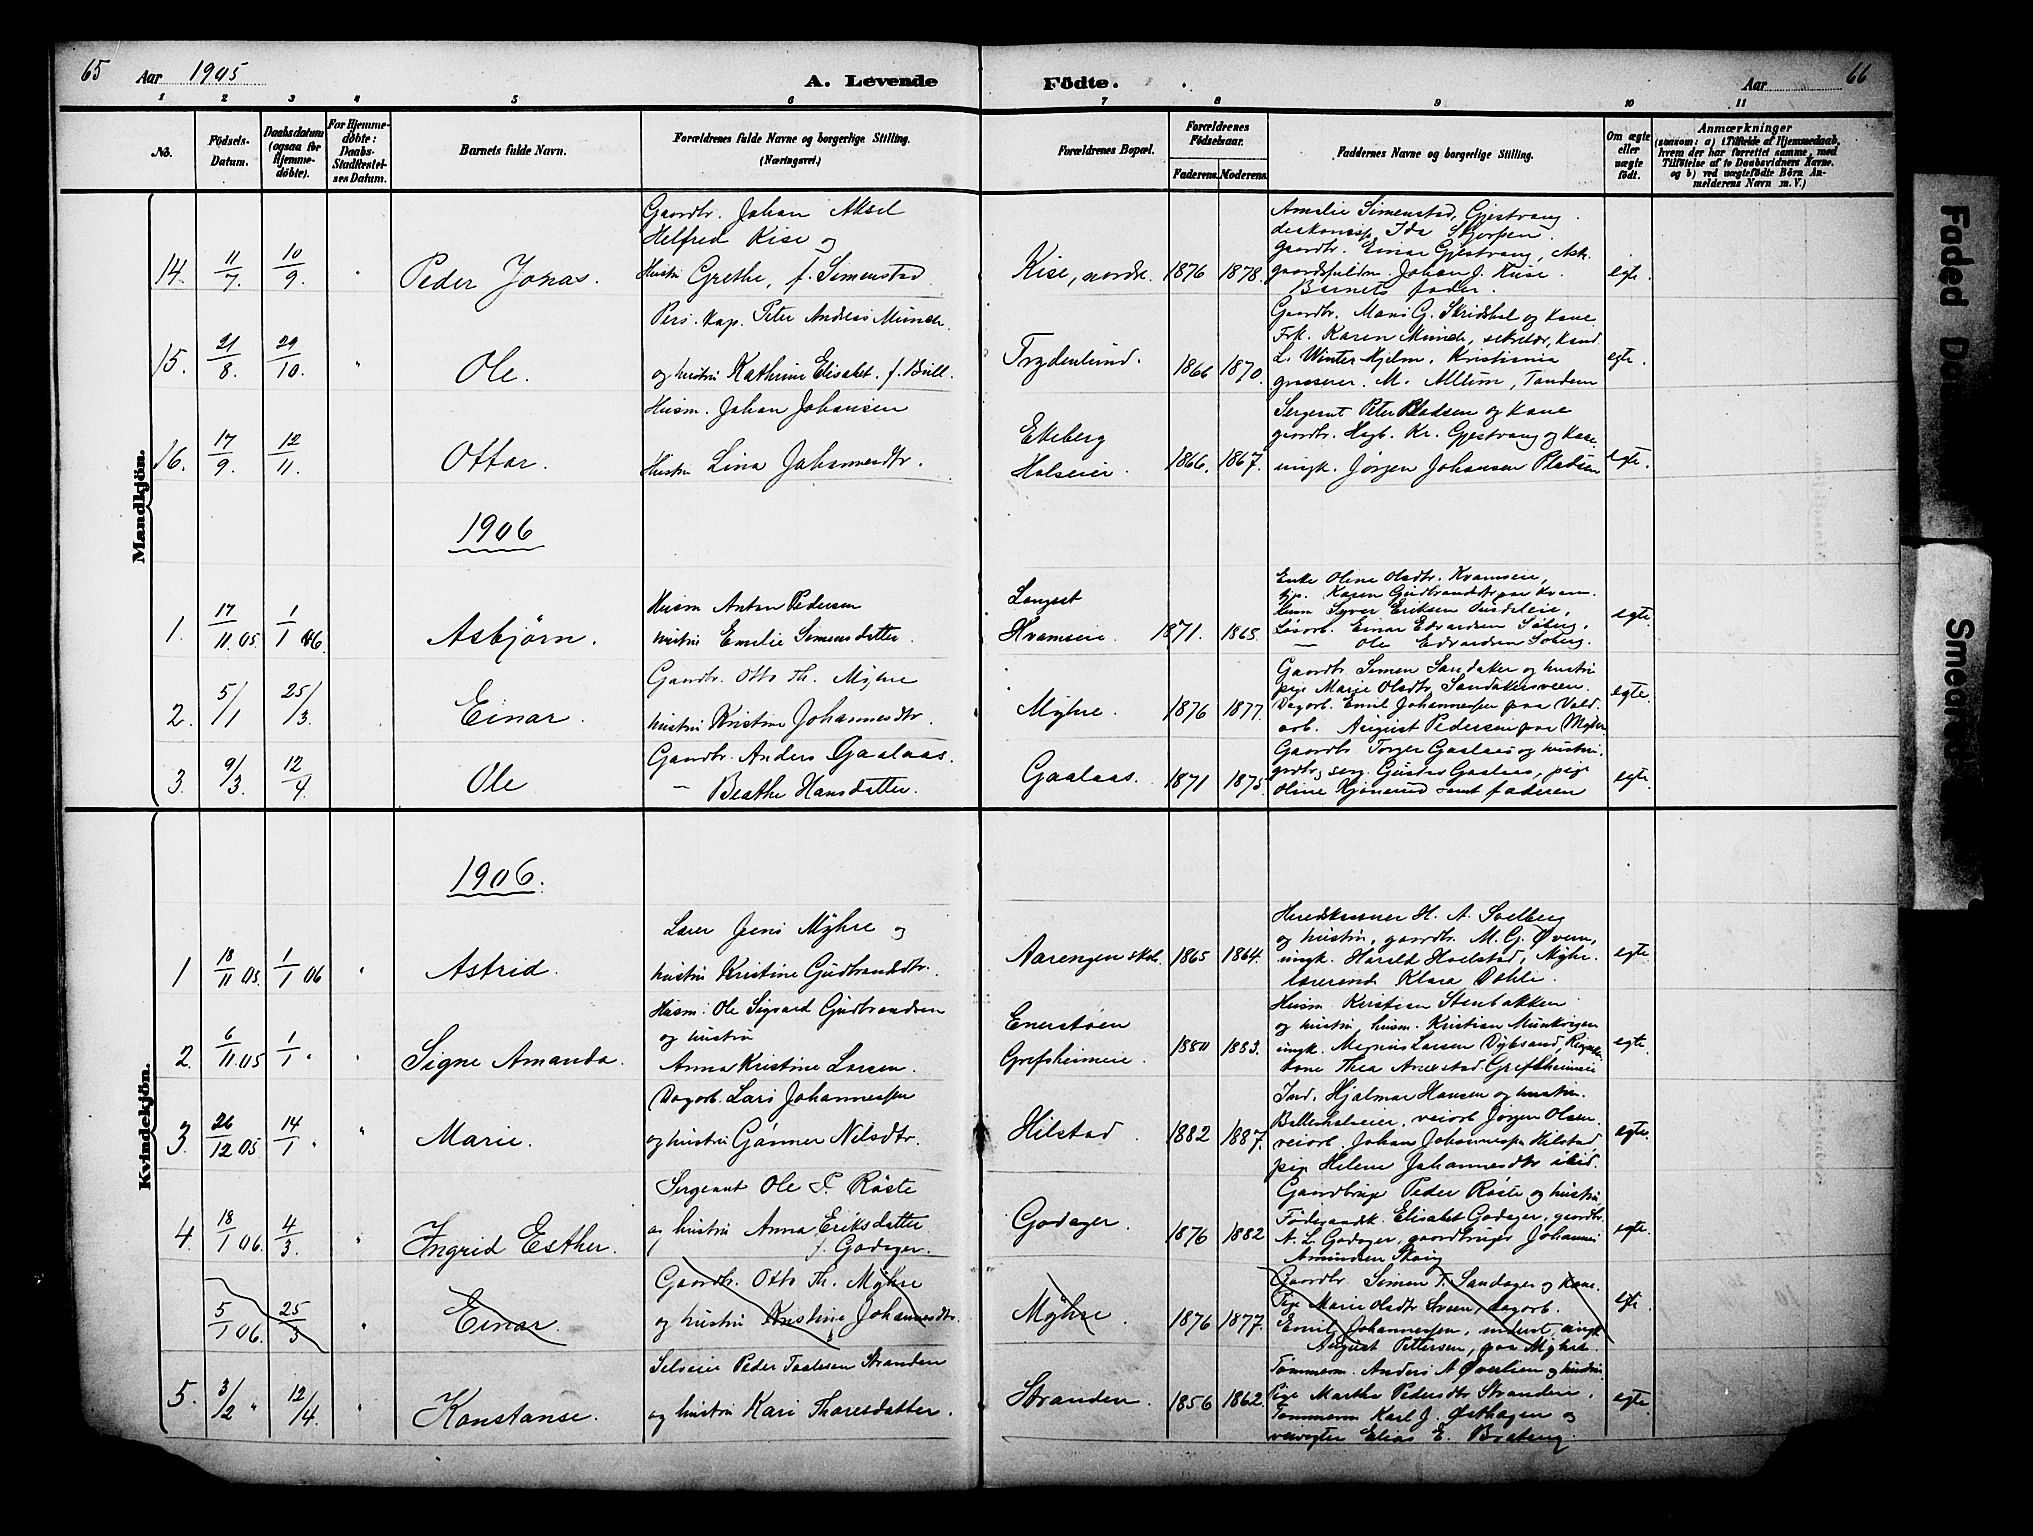 65 Aar 1905 A. Levende Födte. Aar 66
1 2 3 4 5 6 7 8 9 10 11
No.
Födsels-Datum.
Daabsdatum (ogsaa for Hjemmedöbte).
For Hjemmedöbte: Daabs-Stadfæstelses Datum.
Barnets fulde Navn.
Forældrenes fulde Navne og borgerlige Stilling.
(Næringsvei.)
Forældrenes Bopæl.
Forældrenes Födselsaar.
Faderens. Moderens.
Faddernes Navne og borgerlige Stilling.
Om ægte eller uægte födt.
Anmærkninger
(saasom: a) i Tilfælde af Hjemmedaab, hvem der har forrettet samme, med Tilföielse af to Daabsvidners Navne, og b) ved uægtefödte Börn Anmelderens Navn m. V.)
Mandkjön.
14. 11/7 10/9 " Peder Jonas.
Gaardbr. Johan Aksel
Helfred Kise og
Hustru Grethe, f. Simenstad
Kise, nordre. 1876 1878.
Amalie Simenstad, Gjestvang.
Ida Skjorpen.
gaardbr. Einar Gjestvang,
gaardsfuldm. Johan J. Kise.
Barnets fader.
egte
15. 21/8 29/10 " Ole.
Pers. Kap. Peter Andreas Munch
og hustru Kathrine Elisabet. f. Bull.
Frydenlund. 1866 1870.
Gaardbr. Mons G. Skridshol og Kone.
Frk. Karen Munch, sekretær, Kand.
L. Winter Hjelm, Kristiania
grosserer. M. Mellum, Tandem
egte.
16. 17/9 12/11 Ottar.
Husm. Johan Johansen
Hustru Lina Johannesdtr.
Ekeberg
Holseier. 1866. 1867.
Sergeant Peter Pladsen og Kone
gaardbr. Hagb. Kr. Gjestvang og Kone
ungk. Jørgen Johansen Pladsen
egte.
1906
1. 17/11.05 1/1 06. Asbjørn.
Husm Anton Pedersen
hustru Emilie Simensdatter.
Hvamseie. 1871. 1865.
Enke Oline Olsdtr. Kvamseie,
pp. Karen Gudbrandsdtr paa Kvam.
Syver Eriksen
Løsarb. Einar Edvardsen Soberg,
— Ole Edvardsen Soberg
egte.
2. 5/1 25/3 Einar.
Gaardbr. Otto Th. Mÿhre
hustru Kristine Johannesdtr.
Mÿhre. 1876 1877.
Gaardbr Simen Sandaker og hustru
pige Marie Olsdtr Sandakersveen.
Dagarb. Emil Johannessen paa Vold.
arb. August Pedersen paa Myhre
egte.
3. 9/3 12/4 Ole
Gaardbr. Anders Gaalaas.
— Beathe Hansdatter.
Gaalaas. 1871 1875.
Gaardbr. Torger Gaalaas og hustru.
Gustav Gaalaas, pige
Oline samt faderen
egte.
Kvindekjön.
1906.
1 18/11 05 1/1 06 " Astrid.
Lærer Jens Mÿhre og
hustru Kristine Gudbrandsdtr.
Aarengen skole. 1865 1864.
Heredskasserer H. A. Solberg
og hustru, gaardbr. M. G. Øveren,
ungk. Harald Hvelstad, Mÿhre
lærerinde Klara Dahle.
egte
2. 6/11.05 1/1 " " Signe Amanda.
Husm. Ole Sigvard Gudbrandsen
og hustru
Anna Kristine Larsen.
Enerstøen
Grefsheimeie 1880 1883.
Husm. Kristian Stenbakken
og hustru, husm. Kristian Munkvigen
ungk. Magnus Larsen
Kone Thea Grefsheimeie
egte.
3. 26/12 05 14/1 " " Marie.
Dagarb. Lars Johannessen
og hustru Gunner Nilsdtr.
Hilstad. 1882 1887.
Ind. Hjalmar Hansen og hustru.
veiarb. Jørgen Olsen.
veiarb. Johan Johannessen Hilstad
pige Helene Johannesdtr ibid.
egte.
4. 18/1 06. 4/3 " Ingrid Esther.
Sergeant Ole P. Røste
og hustru Anna Eriksdatter
f. Godager.
Godager. 1876 1882
Gaardbruger Peder Røste og hustru
Føderaadsk. Elisabet Godager, gaardbr.
A. L. Godager, gaardbruger Johannes
Amundsen Skaug
egte.
5/1 06. 25/3 " Einar.
Gaardbr. Otto Th. Mÿhre
og hustru Kristine Johannesdtr.
Mÿhre. 1876 1877.
Gaardbr Simen T. Sandager og Kone.
Pige Marie Olsdtr Sveen, dagarb.
Emil Johannessen, ungk.
August Pettersen, paa Mÿhre.
egte
5. 3/2 " 12/4 " Konstanse.
Selveier Peder Taalesen Stranden
og hustru Kari Thoresdatter.
Stranden. 1856 1862.
Tømmerm. Anders A Øverlien og hustru
Pige Martha Pedersdtr Stranden.
Tømmerm Karl J. Østhagen og
Elias E. Brateng
egte
Faded
Smeared